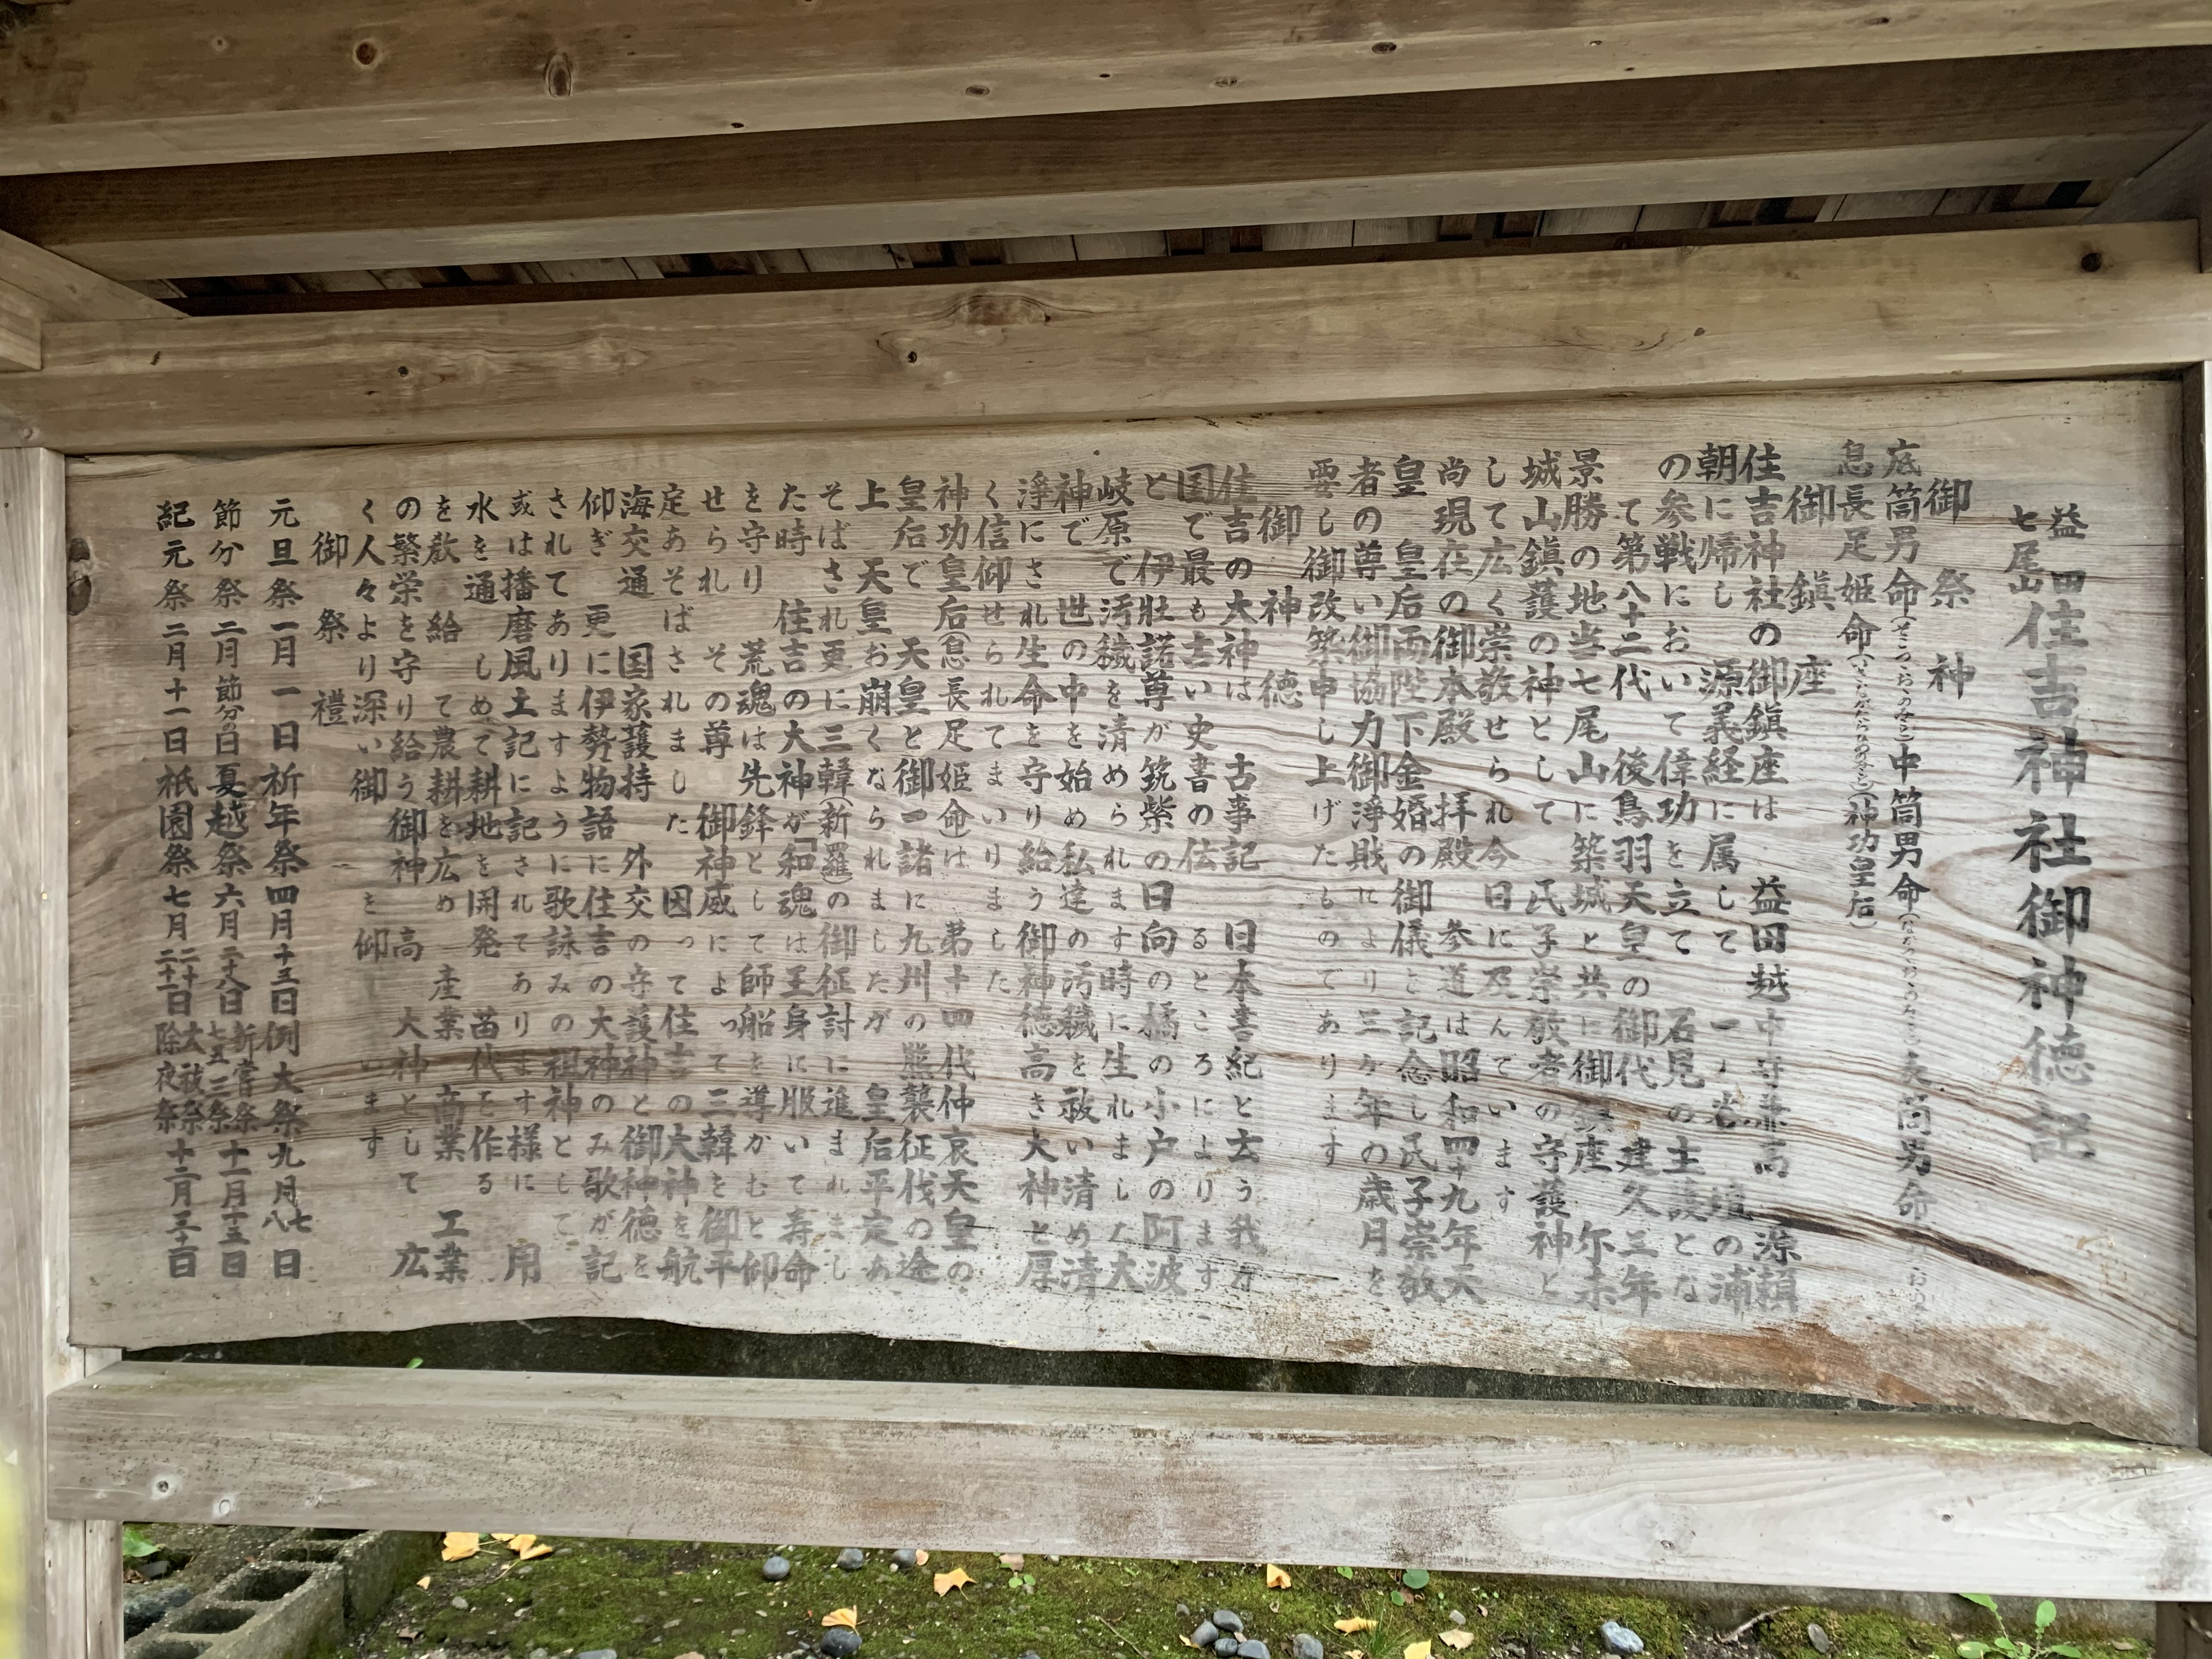 益田
七尾山
住吉神社御神徳記
御祭神
底筒男命(そこつおのみこと)中筒男命 表筒男命
息長足姫命 (神功皇后)
御鎮座
住吉神社の御鎮座は 益田越中守兼高 源頼
朝に帰し 源義経に属して 一ノ谷 壇の浦
の参戦において偉功を立て 石見の主護とな
て第八十二代 後鳥羽天皇の御代 建久三年
景勝の地当七尾山に築城と共に御鎮座 尓来
城山鎮護の神として 氏子崇敬者の守護神と
して広く崇敬せられ今日に及んでいます
尚現在の御本殿 拝殿 参道は 昭和四十九年天
皇 皇后両陛下金婚の御儀を記念し氏子崇敬
者の尊い御協力御浄財により三ヶ年の歳月を
要し御改築申し上げたものであります
御神徳
住吉の大神は 古事記 日本書紀と云う我が
国で最も古い史書の伝るところによります
と 伊壮諾尊が筑紫の日向の橘の小戸の阿波
岐原で汚穢を清められます時に生れました大
神で 世の中を始め私達の汚穢を祓い清め清
浄にされ生命を守り給う御神徳高き大神と厚
く信仰せられてまいりました
神功皇后(息長足姫命)は 第十四代仲哀天皇の
皇后で 天皇と御一諸に九州の熊襲征伐の途
上 天皇お崩くなられましたが 皇后平定あ
そばされ更に三韓(新羅)の御征討に進まれまし
た時 住吉の大神が「和魂は王身に服いて寿命
を守り 荒魂は先鋒として師船を導かむと仰
せられ その尊 御神威によって三韓を御平
定あそばされました 因って住吉の大神を航
海交通 国家護持 外交の守護神と御神徳を
仰ぎ 更に伊勢物語に住吉の大神のみ歌が記
されてありますように歌詠みの祖神として
或は播磨風土記に記されてあります様に 用
水を通 しめて耕地を開発 苗代を作る
を教 給 て農耕を広め 産業 商業 工業
の繁栄を守り給う御神 高 大神として 広
く人々より深い御 を仰 います
御祭禮
元旦祭 一月一日 祈年祭 四月十三日 例大祭 九月七八日
節分祭 二月節分の日 夏越祭 六月二十八日 新嘗祭 七五三祭 十一月十五日
紀元祭 二月十一日 祇園祭 七月二十日二十一日 大祓祭 除夜祭 十二月三十一日